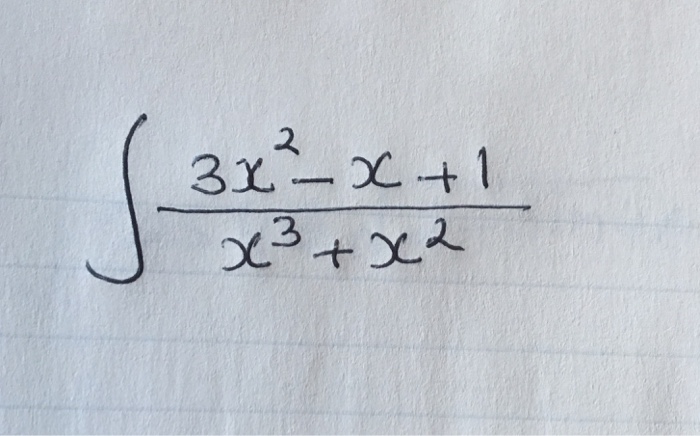 ∫ (3x² - x + 1)/(x³ + x²)